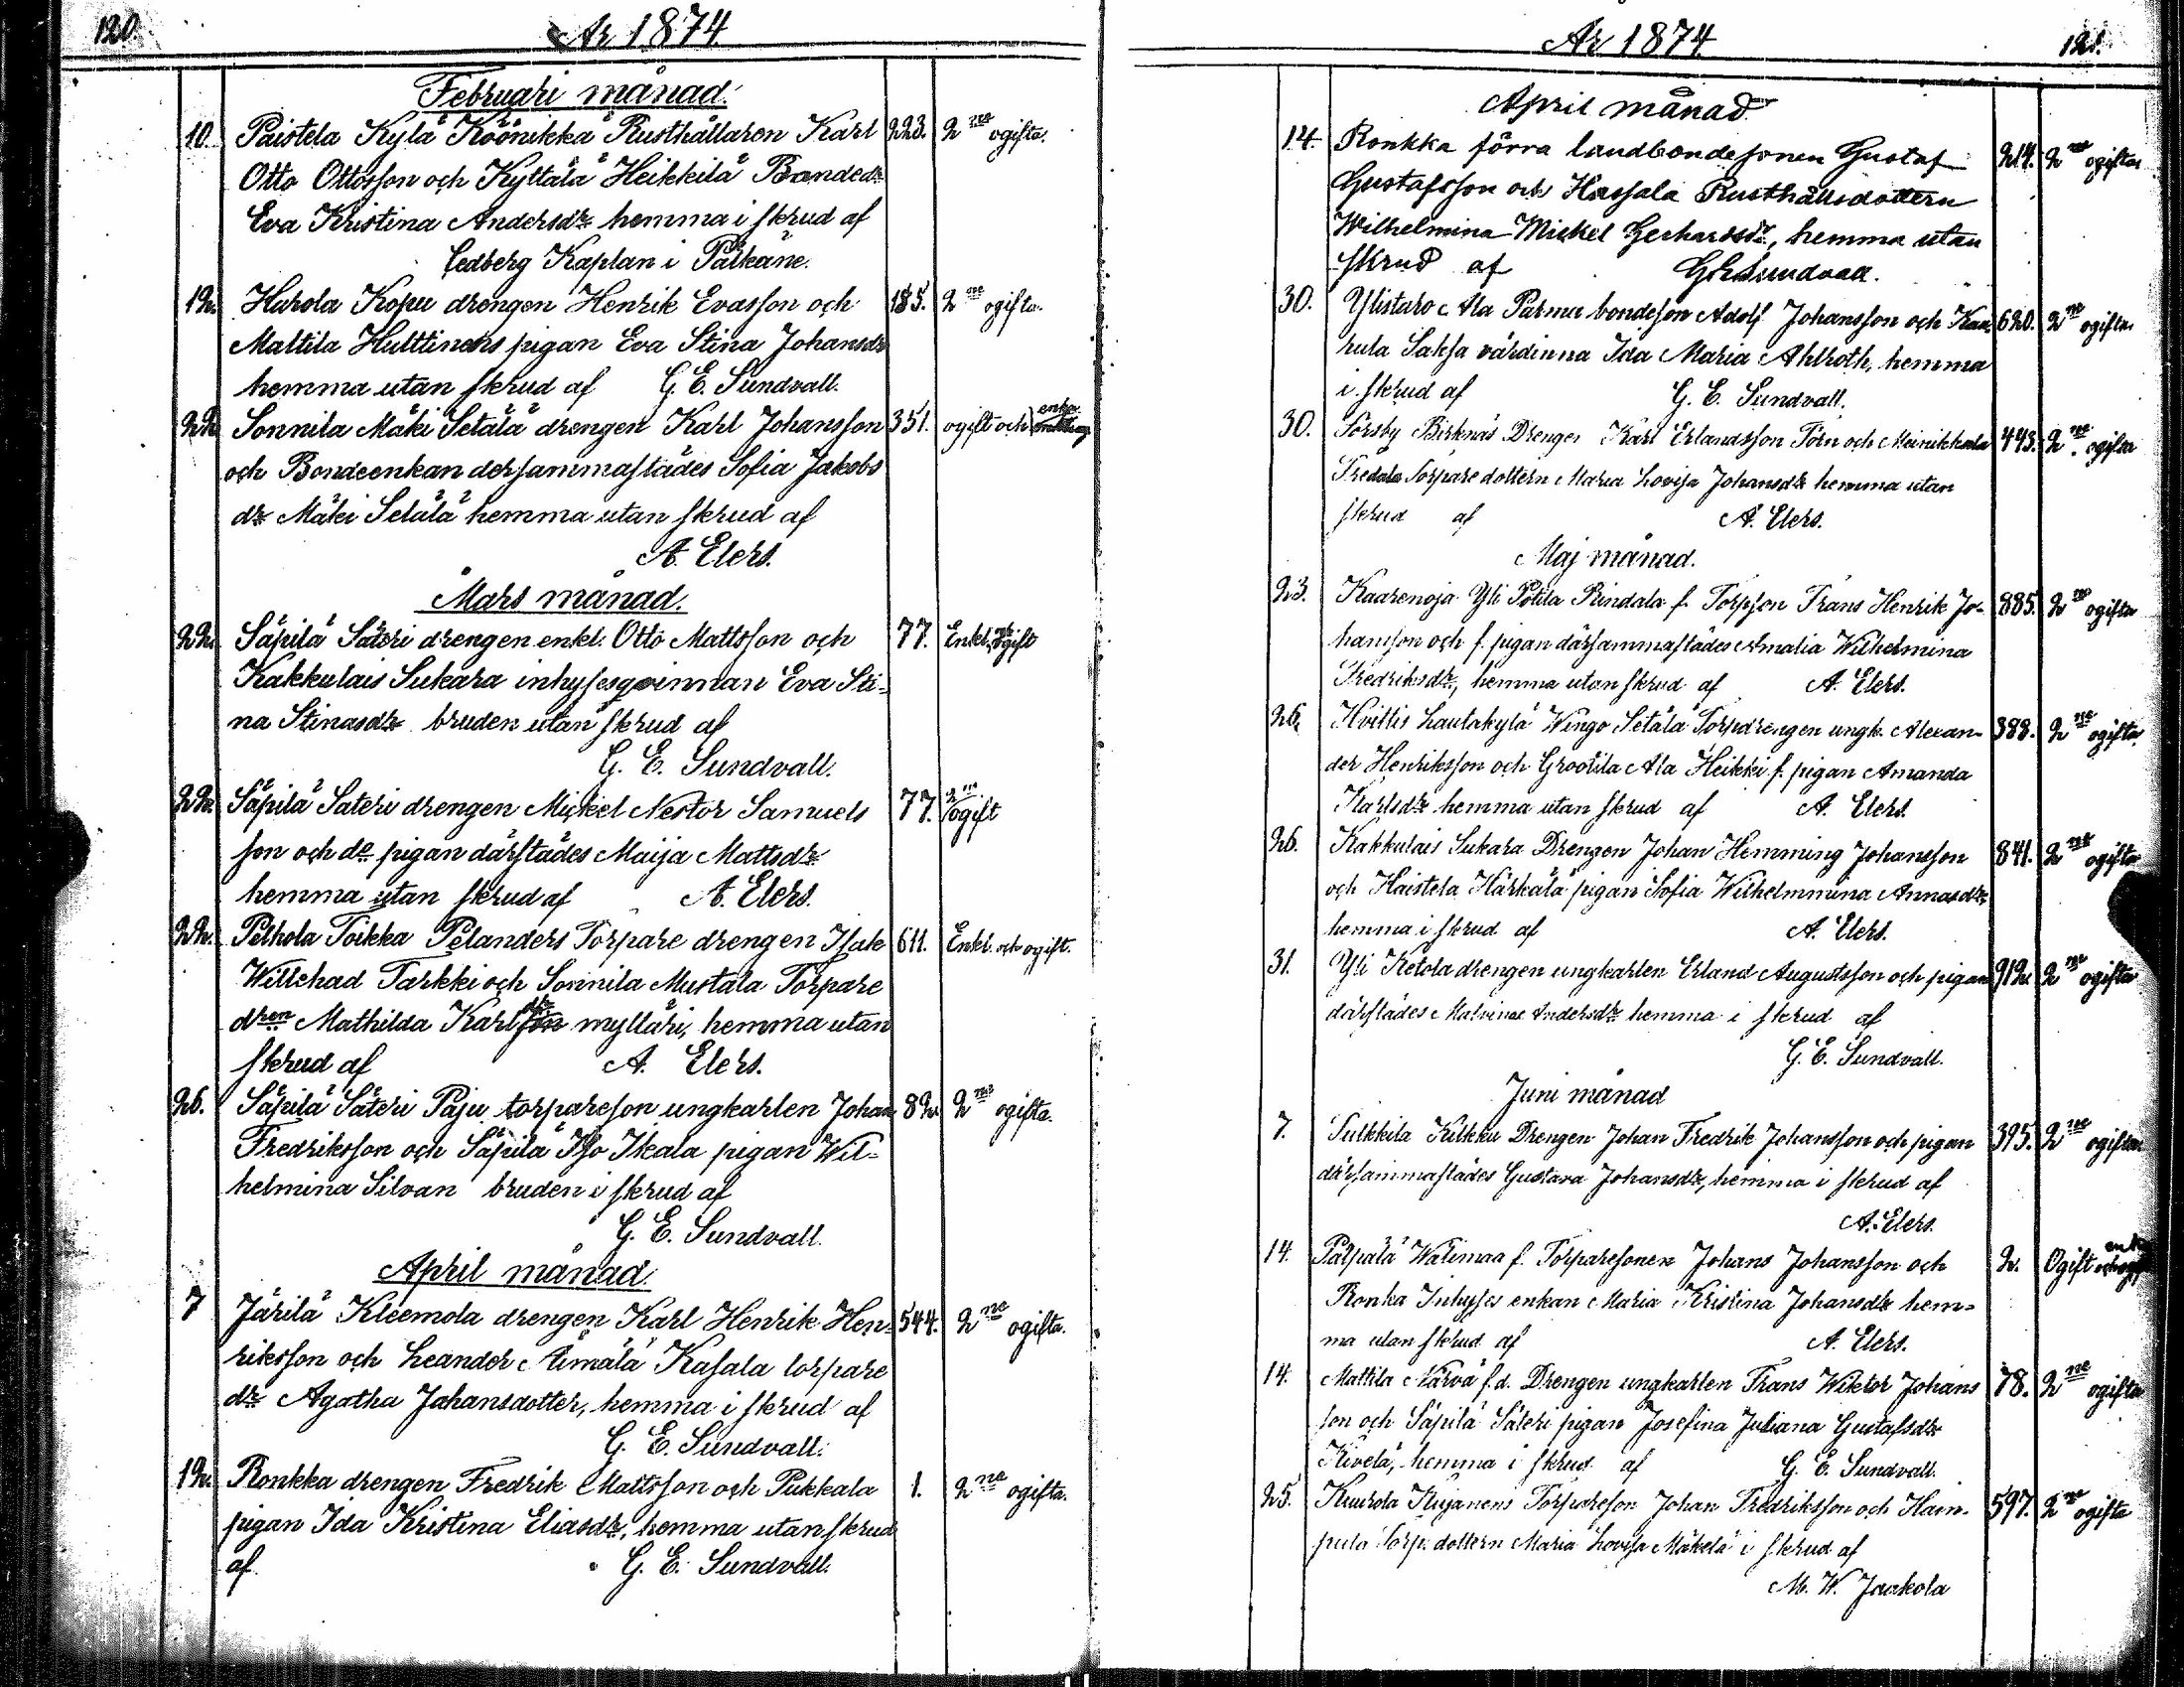 120.
År 1874
Februari månad.
10. Paistela Kylä Köönikkä Rusthållaren Karl 223. 2ne ogifta.
Otto Ottosson och Kyttälä Heikkilä Bondedr
Eva Kristina Andersdr hemma i skrud af
Cedberg Kaplan i Pälkäne.
12. Harola Kopu drengen Henrik Evasson och 185. 2ne ogifta.
Mattila Huttiners pigan Eva Stina Johansdr
hemma utan skrud af G. E. Sundvall.
22 Sonnila Mäki Setälä drengen Karl Johansson 351. ogift och enka
och Bondeenkan dersammastädes Sofia Jakobs
dr Mäki Setälä hemma utan skrud af
A. Elers.
Mars månad.
22. Säpilä Säteri drengen enkl. Otto Mattsson och 77. Enkl. och ogift
Kakkulais Sukara inhysesqvinnan Eva Sti-
na Stinasdr bruden utan skrud af
G. E. Sundvall.
22. Säpilä Säteri drengen Mickel Nestor Samuels 77. 2ne ogift
son och do pigan därstädes Maija Mattsdr
hemma utan skrud af A. Elers.
22. Pelhola Toikka Pelanders Torpare drengen Isak 611. Enkl. och ogift.
Willehad Tarkki och Sonnila Mustala Torpare
dren Mathilda Karlsdr mylläri, hemma utan
skrud af A. Elers.
26. Säpilä Säteri Paju torpareson ungkarlen Johan 82. 2ne ogifta.
Fredriksson och Säpilä Iso Ikala pigan Wil-
helmina Silvan bruden i skrud af
G. E. Sundvall.
April månad.
7 Järilä Kleemola drengen Karl Henrik Hen- 544. 2ne ogifta.
riksson och Leander Äimälä Kasala torpare
dr Agatha Johansdotter, hemma i skrud af
G. E. Sundvall.
12. Ronkka drengen Fredrik Mattsson och Pukkala 1. 2ne ogifta.
pigan Ida Kristina Eliasdr, hemma utan skrud
af G. E. Sundvall.
År 1874
121.
April månad
14. Ronkka förra landbondesonen Gustaf 214. 2ne ogifta
Gustafsson och Hassala Rusthållsdottern
Wilhelmina Mickel Gerhardsdr, hemma utan
skrud af G E Sundvall.
30. Ylistaro Ala Parmu bondeson Adolf Johansson och Kau- 620. 2ne ogifta
rula Saksa värdinna Ida Maria Ahlroth, hemma
i skrud af G. E. Sundvall.
30. Sörsby Birknäs Drengen Karl Erlandsson Törn och Meinikkala 443. 2ne ogifta
Fredala Torpare dottern Maria Lovisa Johansdr hemma utan
skrud af A. Elers.
Maj månad.
23. Kaarenoja Yli Potila Rindala f. Torpson Frans Henrik Jo- 885. 2ne ogifta
hansson och f. pigan därsammastädes Amalia Wilhelmina
Fredriksdr, hemma utan skrud af A. Elers.
26. Hvittis Lautakylä Wingo Setälä Torpdrengen ungk. Alexan- 388. 2ne ogifta.
der Henriksson och Grootila Ala Heikki f. pigan Amanda
Karlsdr hemma utan skrud af A. Elers.
26. Kakkulais Sukara Drengen Johan Hemming Johansson 841. 2ne ogifta
och Haistela Härkälä pigan Sofia Wilhelmmina Annasdr
hemma i skrud af A. Elers.
31. Yli Ketola drengen ungkarlen Erland Augustsson och pigan 912. 2ne ogifta
därstädes Malvina Andersdr hemma i skrud af
G. E. Sundvall.
Juni månad
7. Sulkkila Kilkku Drengen Johan Fredrik Johansson och pigan 395. 2ne ogifta
därsammastädes Gustava Johansdr, hemma i skrud af
A. Elers.
14. Pälpälä Walimaa f. Torparesonen Johans Johansson och 2. Ogift och enka
Ronka Inhyses enkan Maria Kristina Johansdr hem-
ma utan skrud af A. Elers.
14. Mattila Närvä f.d. Drengen ungkarlen Frans Wiktor Johans 78. 2ne ogifta
son och Säpilä Säteri pigan Josefina Juliana Gustafsdr
Kivelä, hemma i skrud af G. E. Sundvall.
25. Kuurola Kujanens Torpareson Johan Fredriksson och Hain- 597. 2ne ogifta
pula Torp. dottern Maria Lovisa Mäkelä i skrud af
M. W. Jaakola